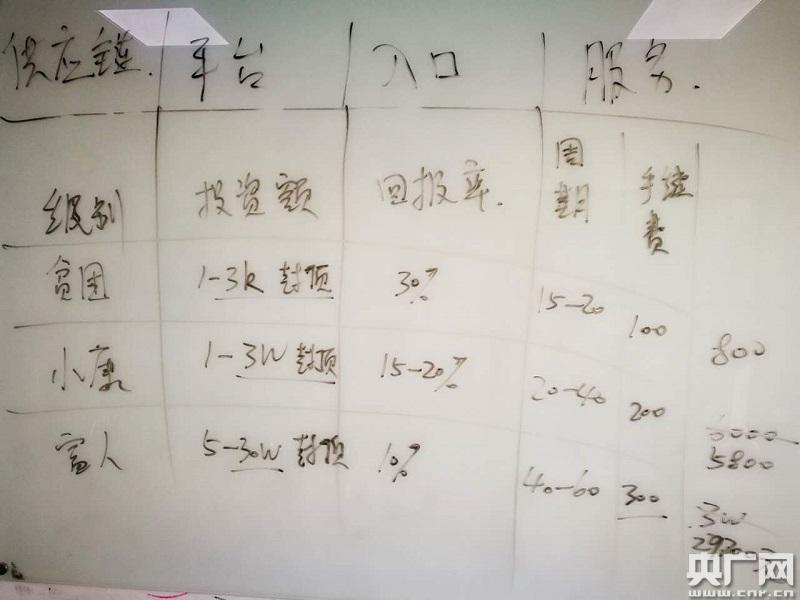 供应链 平台 入口 服务.
级别 投资额 回报率. 周期 手续费
贫困 1-3k 封顶 30% 15-20 100 800
小康 1-3W 封顶 15-20% 20-40 200 6000
5800
富人 5-30W 封顶 10% 40-60 300 3W
央广网
www.cnr.cn